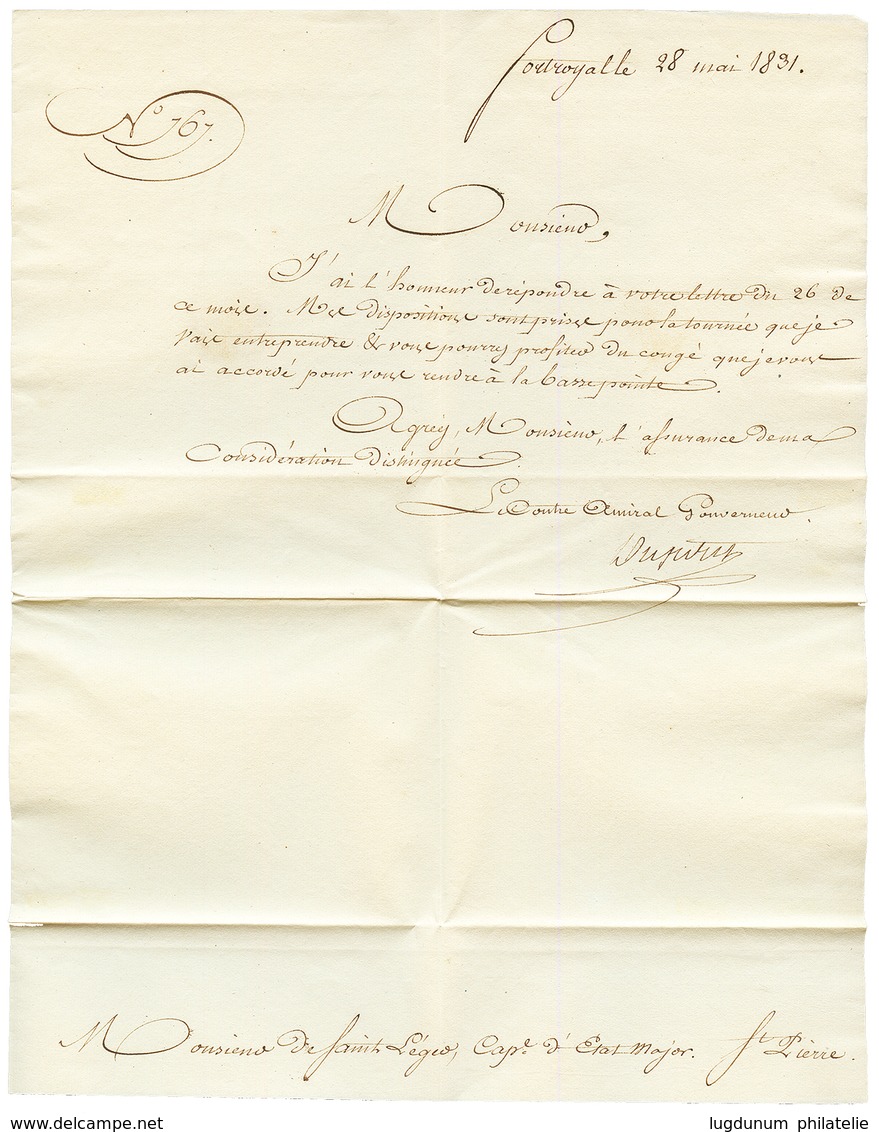 fortroyalle 28 mai 1831.
N° 767.
Monsieur,
J'ai l'honneur de répondre à votre lettre du 26 de
ce mois. Mes dispositions sont prises pour la tournée que je
vais entreprendre & vous pourrez profiter du congé que je vous
ai accordé pour vous rendre à la basse pointe.
Agréez, Monsieur, l'assurance de ma
Considération distinguée.
Le Contre Amiral Gouverneur.
Dupotet
Monsieur de Saint Léger, Cap.e d'Etat Major. St Pierre.
delcampe.net
lugdunum philatelie